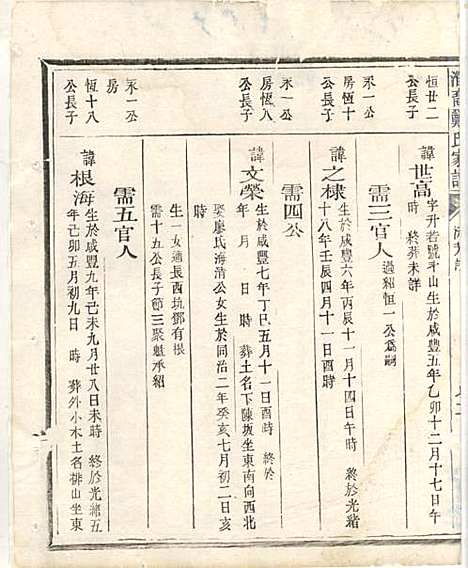 鄭氏家譜
恒廿二
公長子
諱世高字升若號平山生於咸豐五年乙卯十二月十七日午
時 終葬未詳
需三官人過紹恒一公為嗣
永一公
房恆十
公長子
諱之棣生於咸豐六年丙辰十一月十四日午時 終於光緒
十八年壬辰四月十一日酉時
需四公
永一公
房恆八
公長子
諱文榮生於咸豐七年丁巳五月十一日酉時 終於
年 月 日 時 葬土名下陳坂坐東南向西北
娶廖氏海清公女生於同治二年癸亥七月初二日亥
時
生一女適長西坑鄧有根
需十五公長子節三聚魁承紹
需五官人
永一公
房
恆十八
公長子
諱根海生於咸豐九年己未九月廿八日未時 終於光緒五
年己卯五月初九日 時 葬外小木土名排山坐東